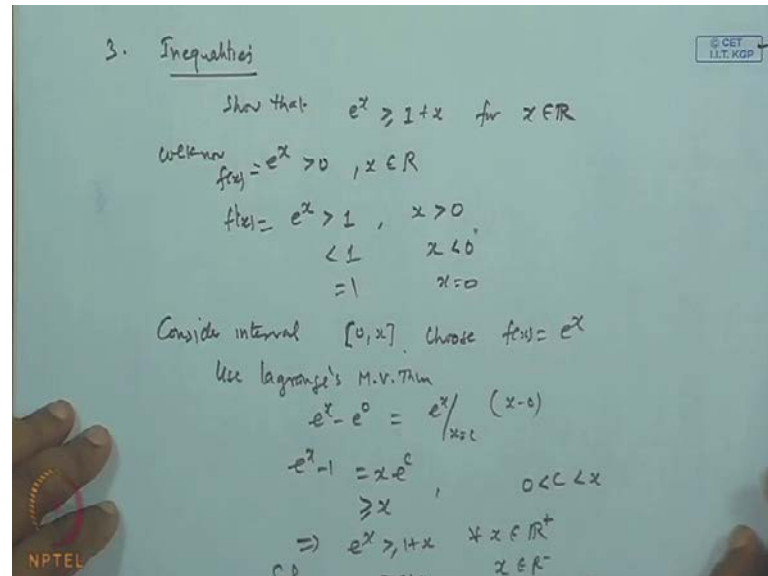 3. Inequalities
© CET
I.I.T. KGP
Show that e^x ≥ 1+x for x ∈ ℝ
We know
f(x) = e^x > 0 , x ∈ R
f'(x) = e^x > 1 , x > 0
< 1 x < 0
= 1 x = 0
Consider interval [0, x]. Choose f(x) = e^x
Use Lagrange's M.V. Thm
e^x - e^0 = e^x/x=c (x-0)
e^x - 1 = x e^c , 0 < c < x
≥ x
⇒ e^x ≥ 1+x ∀ x ∈ ℝ^+
x ∈ R^-
NPTEL